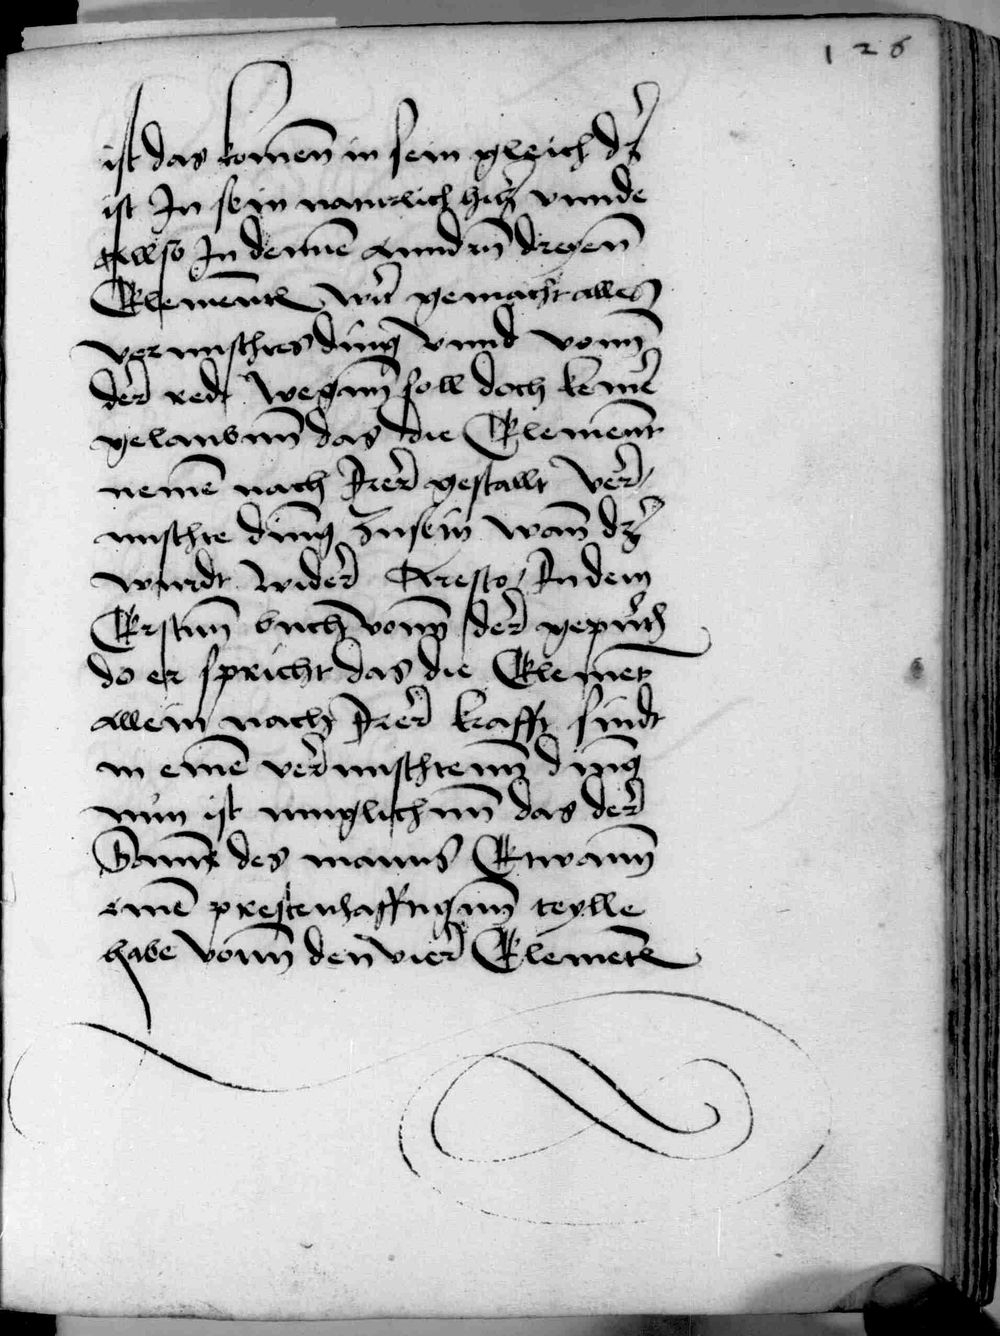 126
ist das komen̄ in sein gleich dz
ist In sein naturlich hitz vnnde
Allso In denne annd'n̄ dreyen̄
Elementn̄ wir̄ gemacht alles
vermischtes ding vnnd vonn̄
der̄ redt wegnn̄ soll doch keinr̄
gelaubnn̄ das die Element
nemen̄ nach Irer̄ gestallt Ver̄
mischte dinng zusein wan̄ dz
wurdt wider̄ Aresto / In dem
Erstnn̄ buch vonn̄ der̄ gepurt
do er spricht das die Element
allein nach Irer̄ krafft sindt
in einē ver̄mischtenn̄ dinng
nun ist muglichnn̄ das der̄
Samē des manns Etwann̄
einē prestenhafftignn̄ teylle
habe vonn̄ den vier̄ Elemetn̄